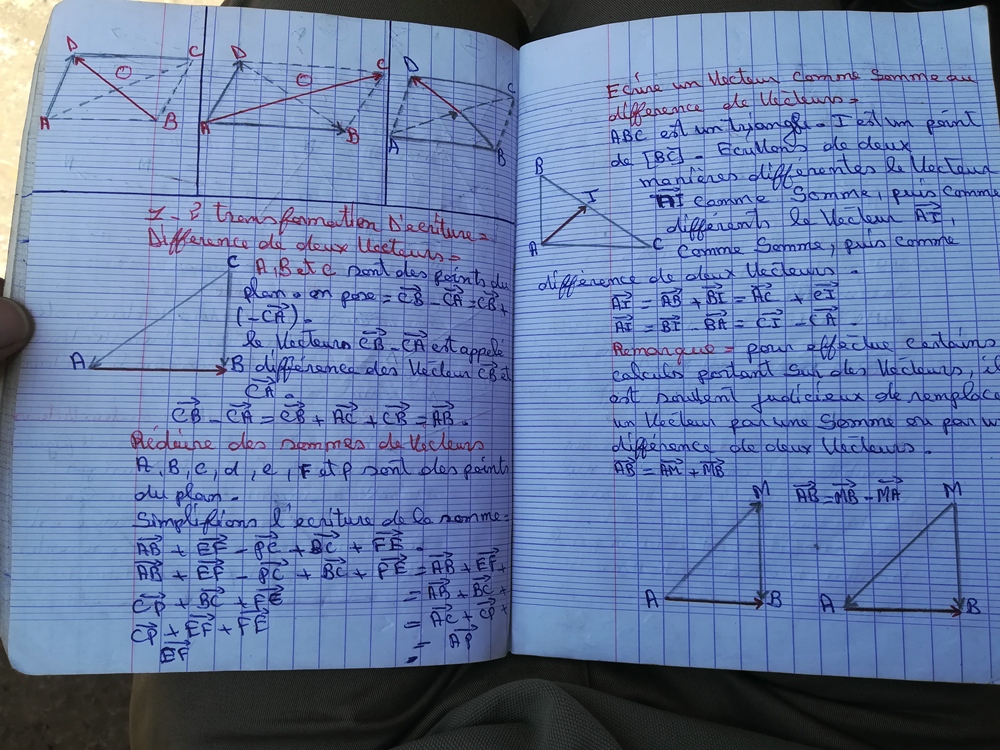 D C D C D C
A B A B A B
1-2 transformation D'écriture=
Différence de deux Vecteurs=
C A, B et C sont des points du
plan. on pose = CB - CA = CB +
(-CA).
le Vecteurs CB - CA est appelé
A B différence des Vecteur CB et
CA.
CB - CA = CB + AC + CB = AB.
Réduire des sommes de Vecteurs
A, B, c, d, e, F et p sont des points
du plan.
Simplifions l'ecriture de la somme=
AB + EF - PC + BC + FE.
AB + EF - PC + BC + PE = AB + EF +
CP + BC + FE = AB + BC +
CP + EF + FE = AC + CP +
EF = AP
Ecrire un Vecteur Comme Somme ou
différence de Vecteurs=
ABC est un triangle - I est un point
de [BC] - Ecrivons de deux
manières différentes le Vecteur
AI comme Somme, puis comme
différents le Vecteur AI,
Comme Somme, puis comme
différence de deux Vecteurs.
B I A C
AI = AB + BI = AC + CI
AI = BI - BA = CI - CA.
Remarque = pour effectue certains
calculs portant sur des Vecteurs, il
est souvent judicieux de remplace
un Vecteur par une Somme ou par u
différence de deux Vecteurs.
AB = AM + MB
M AB = MB - MA M
A B A B